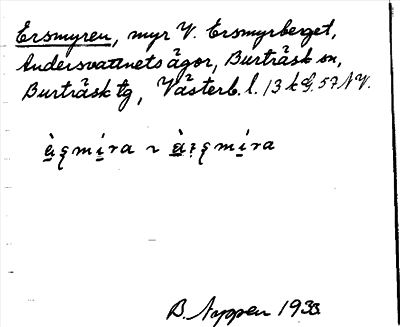 Ersmyren, myr V. Ersmyrberget,
Andersvattnets ägor, Burträsk sn,
Burträsk tg, Västerb. l. 13 k G. 57 NV.
B. Nyppen 1933